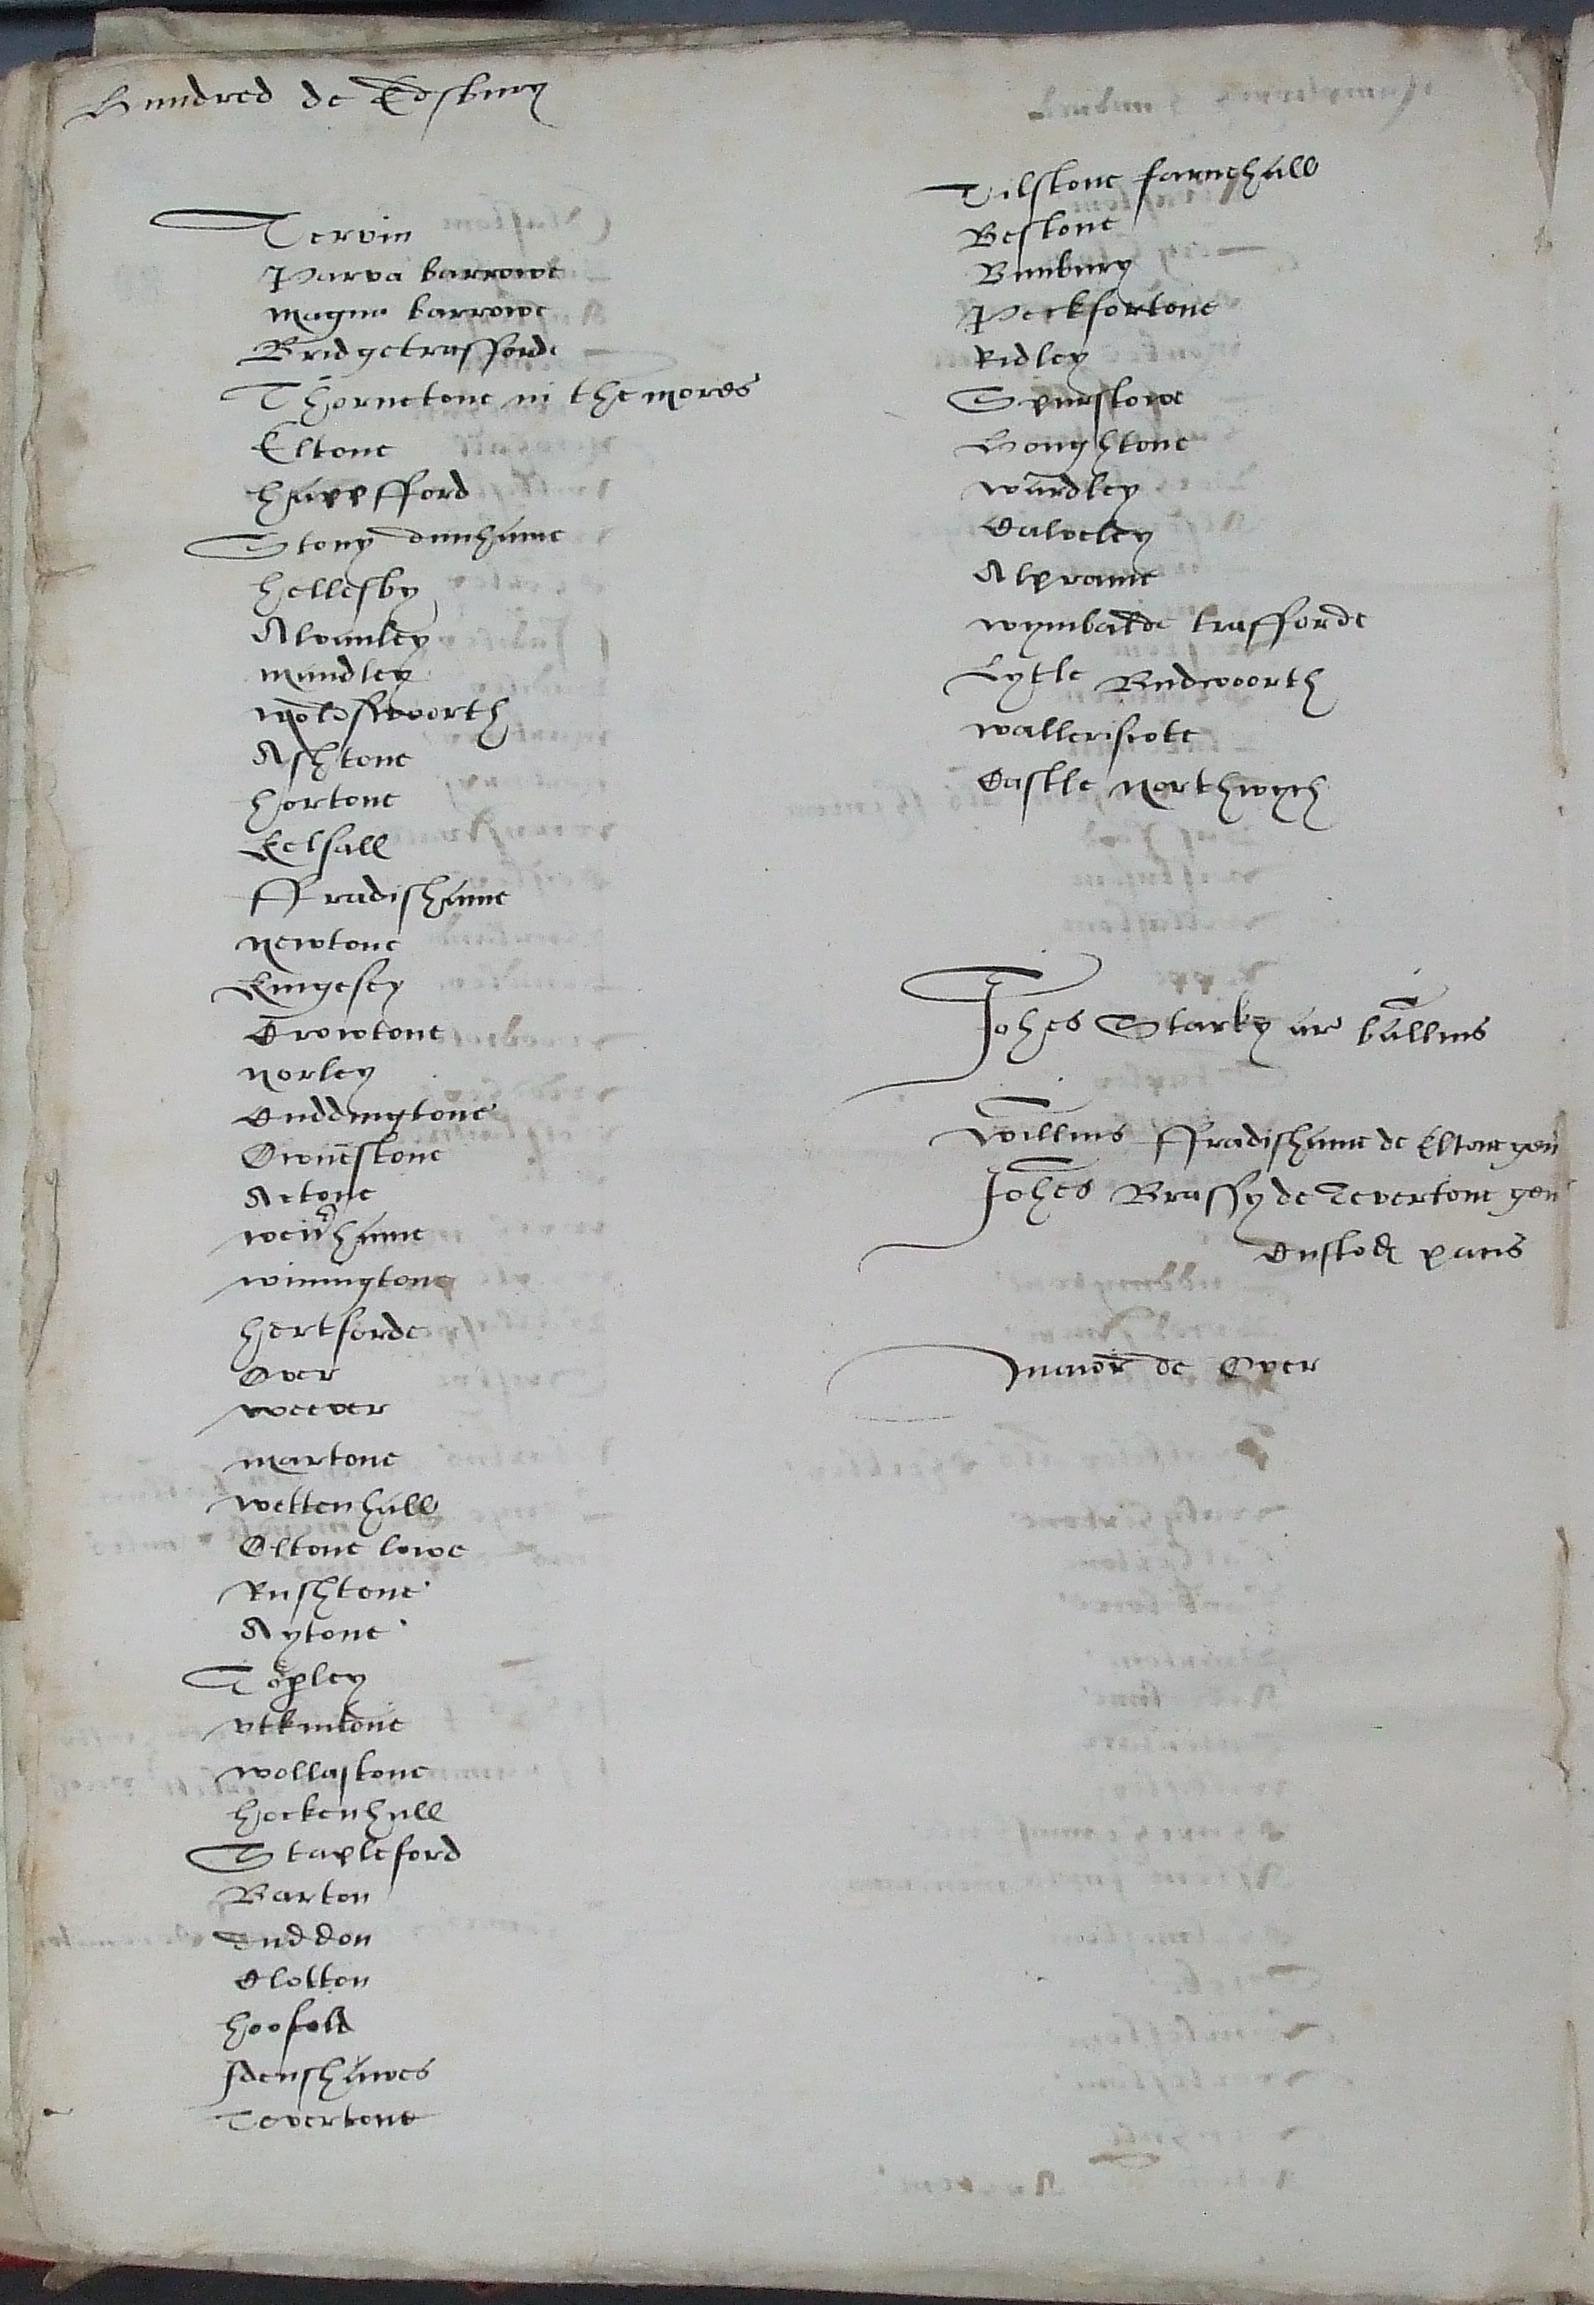 Hundred de Edsbury
Tervin
Parva barrowe
Magna barrowe
Bridgetrafforde
Thornetone in the mores
Eltone
happfford
Stony dunhame
hellesby
Alvanley
Mandley
Moldswoorth
Ashtone
hortone
Kelsall
ffradishame
Newtone
Kingesley
Crowtone
Norley
Cuddingtone
Ownestone
Actone
Weu'hame
Winingtone
hertforde
Over
Weever
Martone
Wettenhall
Oltone lowe
Rushtone
Aytone
Torpley
Utkintone
Wollastone
hockenhull
Stapleford
Barton
Duddon
Clotton
hoofeld
Idenshawes
Tevertone
Tilstone farnehall
Bestone
Bunbury
Peckfortone
Ridley
Spurstowe
Houghtone
Wardley
Calveley
Alprame
Wymbalde trafforde
Lytle Budwoorth
Walleriscote
Castle Northwych
Johes Starky ar ballius
Willms ffradishame de Eltone gen
Johes Brassy de Tevertone gen
Custod pacis
Maior de Over